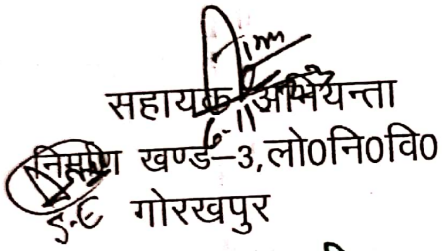 सहायक अभियन्ता
निर्माण खण्ड–3,लो0नि0वि0
गोरखपुर